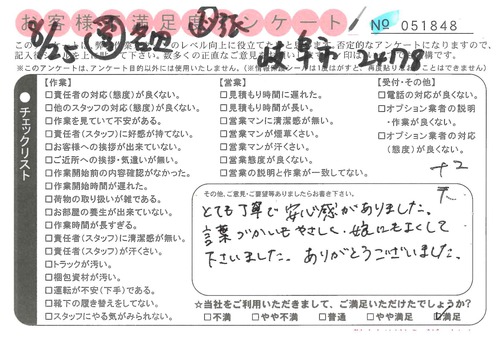 お客様満足度アンケート
№ 051848
8/25
岐阜市
【作業】
□責任者の対応(態度)が良くない。
□他のスタッフの対応(態度)が良くない。
□作業を見ていて不安がある。
□責任者(スタッフ)に好感が持てない。
□お客様への挨拶が出来ていない。
□ご近所への挨拶・気遣いが無い。
□作業開始前の内容確認がなかった。
□作業開始時間が遅れた。
□荷物の取り扱いが雑である。
□お部屋の養生が出来ていない。
□作業時間が長すぎる。
□責任者(スタッフ)に清潔感が無い。
□責任者(スタッフ)が汗くさい。
□トラックが汚い。
□梱包資材が汚い。
□運転が不安(下手)である。
□靴下の履き替えをしてない。
□スタッフにやる気がみられない。
【営業】
□見積もり時間に遅れた。
□見積もり時間が長い。
□営業マンに清潔感が無い。
□営業マンが煙草くさい。
□営業マンが汗くさい。
□営業態度が良くない。
□営業の説明と作業が一致してない。
【受付・その他】
□電話の対応が良くない。
□オプション業者の説明
・作業が良くない。
□オプション業者の対応
(態度)が良くない。
●チェックリスト
その他、ご意見・ご要望等ありましたらお書き下さい。
とても丁寧で安心感がありました。
言葉づかいもやさしく、娘にもよくして
下さいました。ありがとうございました。
☆当社をご利用いただきまして、ご満足いただけたでしょうか?
□不満 □やや不満 □普通 □やや満足 □満足